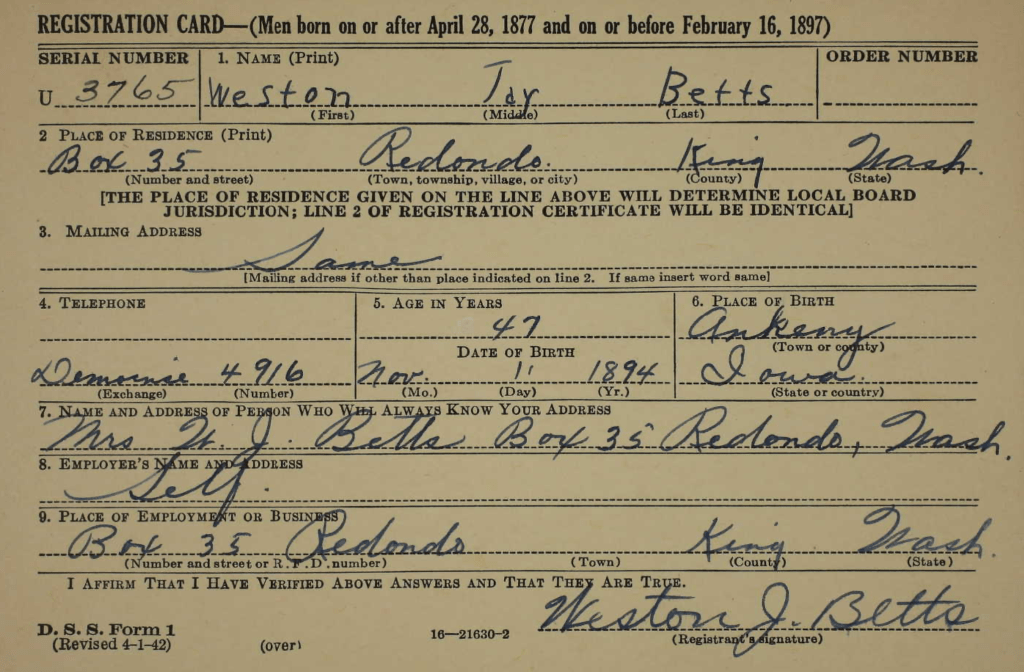 REGISTRATION CARD—(Men born on or after April 28, 1877 and on or before February 16, 1897)
SERIAL NUMBER 1. NAME (Print) ORDER NUMBER
U 3765 Weston Jay Betts
(First) (Middle) (Last)
2 PLACE OF RESIDENCE (Print)
Box 35 Redondo. King Wash.
(Number and street) (Town, township, village, or city) (County) (State)
[THE PLACE OF RESIDENCE GIVEN ON THE LINE ABOVE WILL DETERMINE LOCAL BOARD
JURISDICTION; LINE 2 OF REGISTRATION CERTIFICATE WILL BE IDENTICAL]
3. MAILING ADDRESS
Same
[Mailing address if other than place indicated on line 2. If same insert word same]
4. TELEPHONE 5. AGE IN YEARS 6. PLACE OF BIRTH
47 Ankeny
(Town or county)
DATE OF BIRTH
Demoinse 4916 Nov. 11 1894 Iowa.
(Exchange) (Number) (Mo.) (Day) (Yr.) (State or country)
7. NAME AND ADDRESS OF PERSON WHO WILL ALWAYS KNOW YOUR ADDRESS
Mrs W. J. Betts Box 35 Redondo, Wash.
8. EMPLOYER'S NAME AND ADDRESS
Self.
9. PLACE OF EMPLOYMENT OR BUSINESS
Box 35 Redondo King Wash.
(Number and street or R. F. D. number) (Town) (County) (State)
I AFFIRM THAT I HAVE VERIFIED ABOVE ANSWERS AND THAT THEY ARE TRUE.
Weston J. Betts
D. S. S. Form 1
(Revised 4-1-42) (over) 16—21630-2 (Registrant's signature)